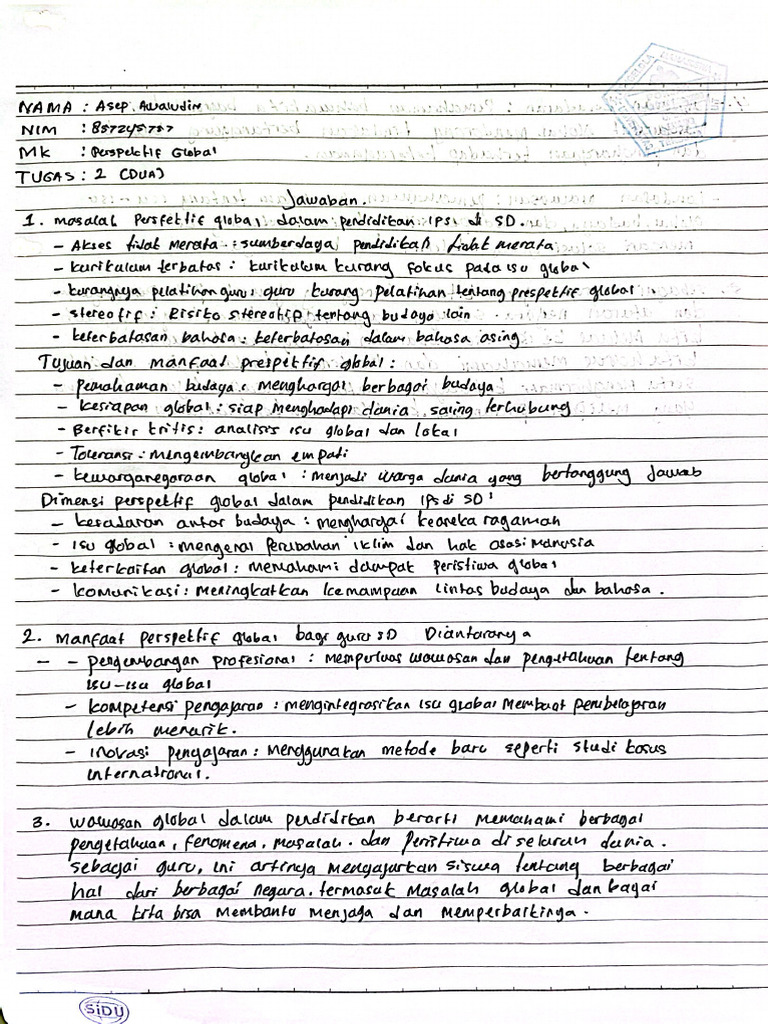 NAMA : Asep Awaludin
NIM : 857245757
MK : Perspektif Global
TUGAS : 2 (DUA)
Jawaban.
1. masalah Persfektif global dalam pendidikan IPS di SD.
- Akses tidak merata : sumberdaya pendidikan tidak merata
- kurikulum terbatas : kurikulum kurang fokus pada isu global
- kurangnya pelatihan guru : guru kurang pelatihan tentang prespektif global
- stereotif : Risiko stereotip tentang budaya lain
- keterbatasan bahasa : keterbatasan dalam bahasa asing
Tujuan dan manfaat prespektif global :
- pemahaman budaya : menghargai berbagai budaya
- kesiapan global : siap menghadapi dunia saling terhubung
- Berfikir kritis : analisis isu global dan lokal
- Toleransi : mengembangkan empati
- kewarganegaraan global : menjadi warga dunia yang bertanggung jawab
Dimensi perspektif global dalam pendidikan IPS di SD :
- kesadaran antar budaya : menghargai keaneka ragaman
- isu global : mengenai perubahan iklim dan hak asasi manusia
- keterkaitan global : memahami dampak peristiwa global
- komunikasi : meningkatkan kemampuan lintas budaya dan bahasa .
2. Manfaat perspektif global bagi guru SD Diantaranya
- - pengembangan profesional : memperluas wawasan dan pengetahuan tentang
isu-isu global
- kompetensi pengajaran : mengintegrasikan isu global membuat pembelajaran
lebih menarik.
- inovasi pengajaran : menggunakan metode baru seperti studi kasus
international.
3. wawasan global dalam pendidikan berarti memahami berbagai
pengetahuan, fenomena, masalah. dan peristiwa di seluruh dunia.
sebagai guru, ini artinya mengajarkan siswa tentang berbagai
hal dari berbagai negara. termasuk masalah global dan bagai
mana kita bisa membantu menjaga dan memperbaikinya.
SiDU